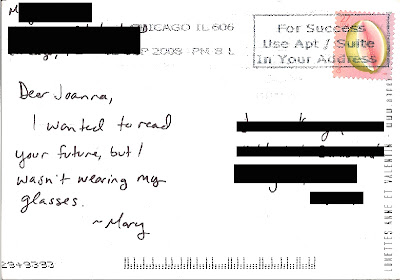 CHICAGO IL 606
SEP 2008 PM 8 L
For Success
Use Apt / Suite
In Your Address
Dear Joanna,
I wanted to read
your future, but I
wasn't wearing my
glasses.
~Mary
LUNETTES ANNE ET VALENTIN - WWW.